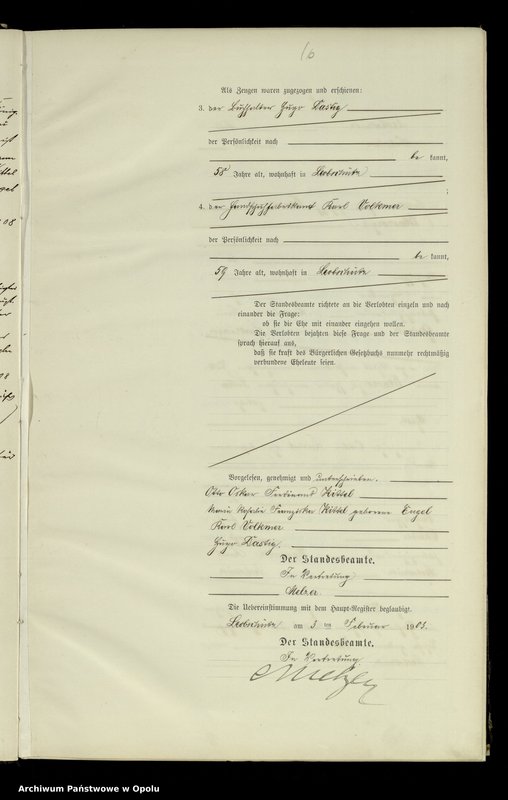 10
Als Zeugen waren zugezogen und erschienen:
3. der Buchhalter Hugo Bastig
der Persönlichkeit nach
be kannt,
58 Jahre alt, wohnhaft in Leobschütz
;
4. der Handschuhfabrikant Karl Volkmer
der Persönlichkeit nach
be kannt,
59 Jahre alt, wohnhaft in Leobschütz
Der Standesbeamte richtete an die Verlobten einzeln und nach
einander die Frage:
ob sie die Ehe mit einander eingehen wollen.
Die Verlobten bejahten diese Frage und der Standesbeamte
sprach hierauf aus,
daß sie kraft des Bürgerlichen Gesetzbuchs nunmehr rechtmäßig
verbundene Eheleute seien.
Vorgelesen, genehmigt und unterschrieben.
Otto Oskar Ferdinand Kittel
Maria Franziska Kittel geborene Engel
Karl Volkmer
Hugo Bastig
Der Standesbeamte.
In Vertretung
Melzer.
Die Uebereinstimmung mit dem Haupt-Register beglaubigt.
Leobschütz am 3 ten Februar 1908.
Der Standesbeamte.
In Vertretung
Melzer
Archiwum Państwowe w Opolu